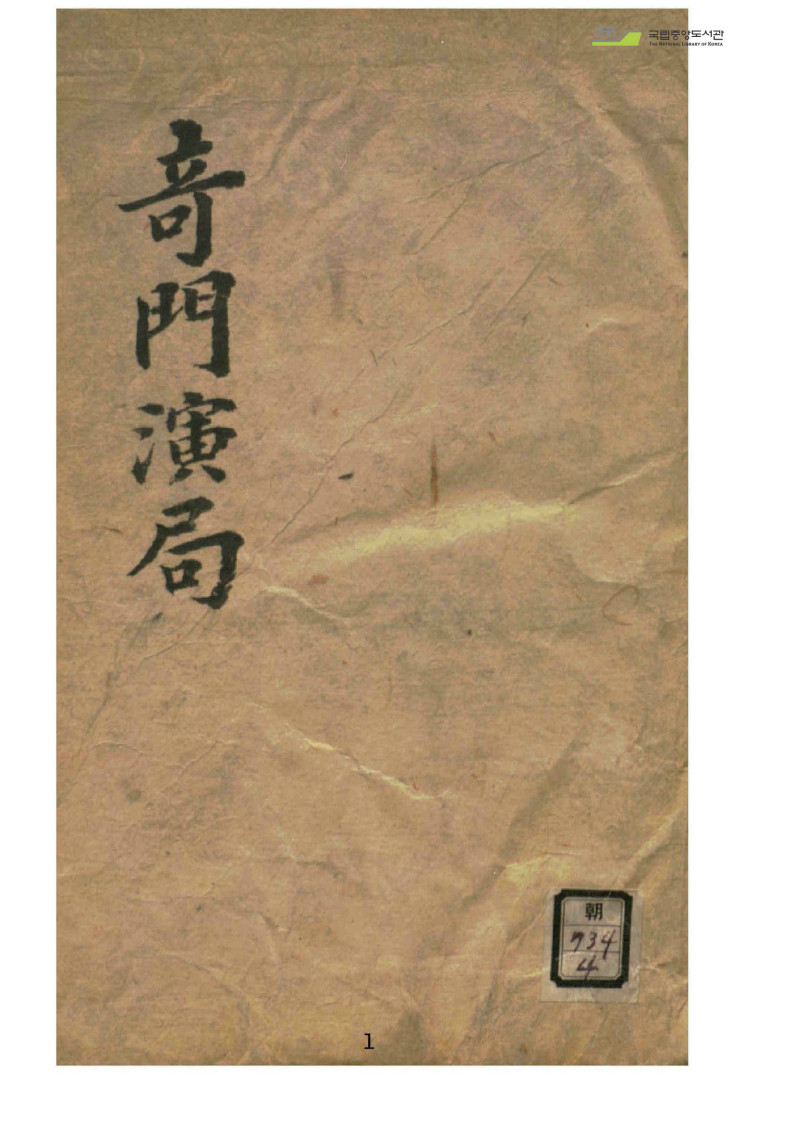 국립중앙도서관
THE NATIONAL LIBRARY OF KOREA
奇門演局
朝
734
4
1